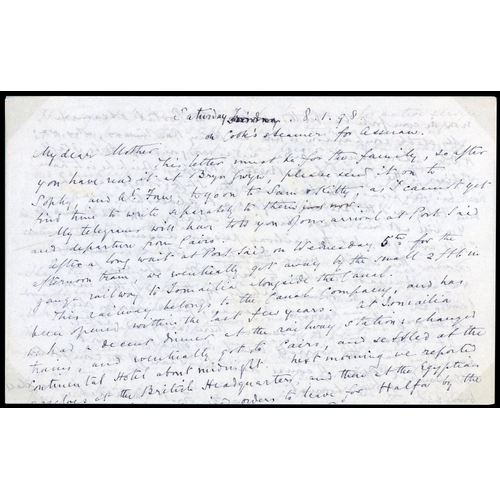 Saturday Friday. 8.1.98.
on Cook's steamer for Assuan.
My dear Mother
This letter must be for the family, so after
you have read it at Bryn Gwyn, please send it on to
Sophy, and At Fanny to go on to Sam & Kitty; as I cannot yet
find time to write separately to them just now.
My telegrams will have told you of our arrival at Port Said
and departure from Cairo.
After a long wait at Port Said on Wednesday 5th for the
afternoon train, we eventually got away by the small 2 ft 6 in
gauge railway to Ismailia alongside the Canal.
This railway belongs to the Canal Company, and has
been opened within the last few years. At Ismailia
we had a decent dinner at the railway station, changed
trains, and eventually got to Cairo, and settled at the
Continental Hotel about midnight. Next morning we reported
ourselves at the British Headquarters, and then at the Egyptian
and orders to leave for Halfa by the